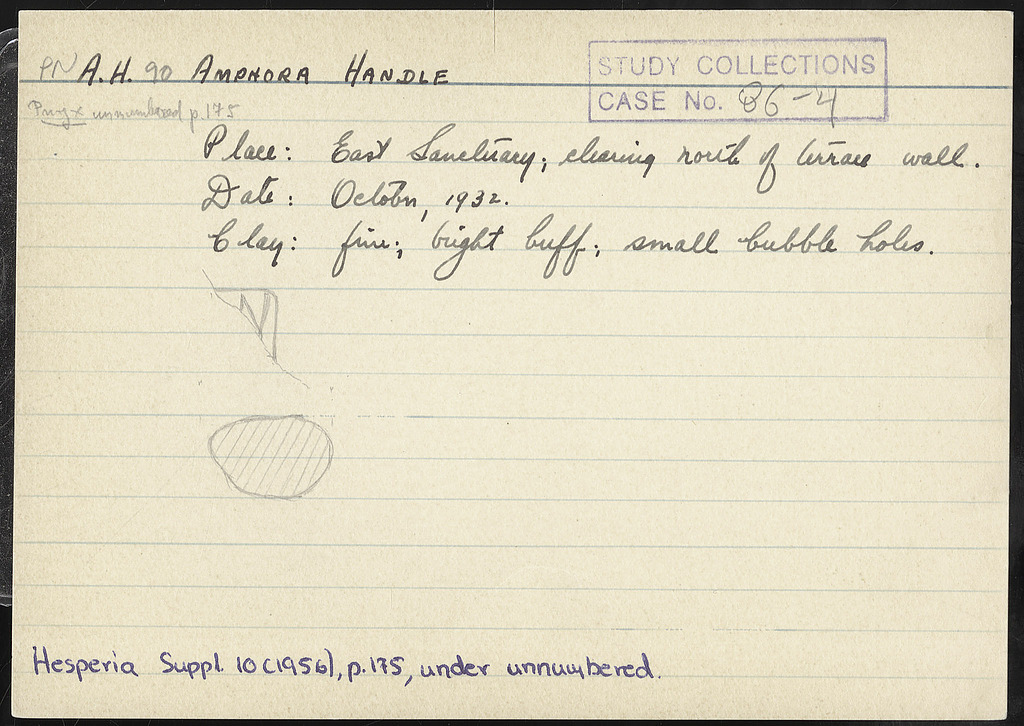 PN A.H. 90 AMPHORA HANDLE
STUDY COLLECTIONS
CASE No. 86-4
Pnyx unnumbered p. 175
Place: East Sanctuary; clearing north of terrace wall.
Date: October, 1932.
Clay: fine; bright buff; small bubble holes.
Hesperia Suppl. 10 (1956), p. 175, under unnumbered.